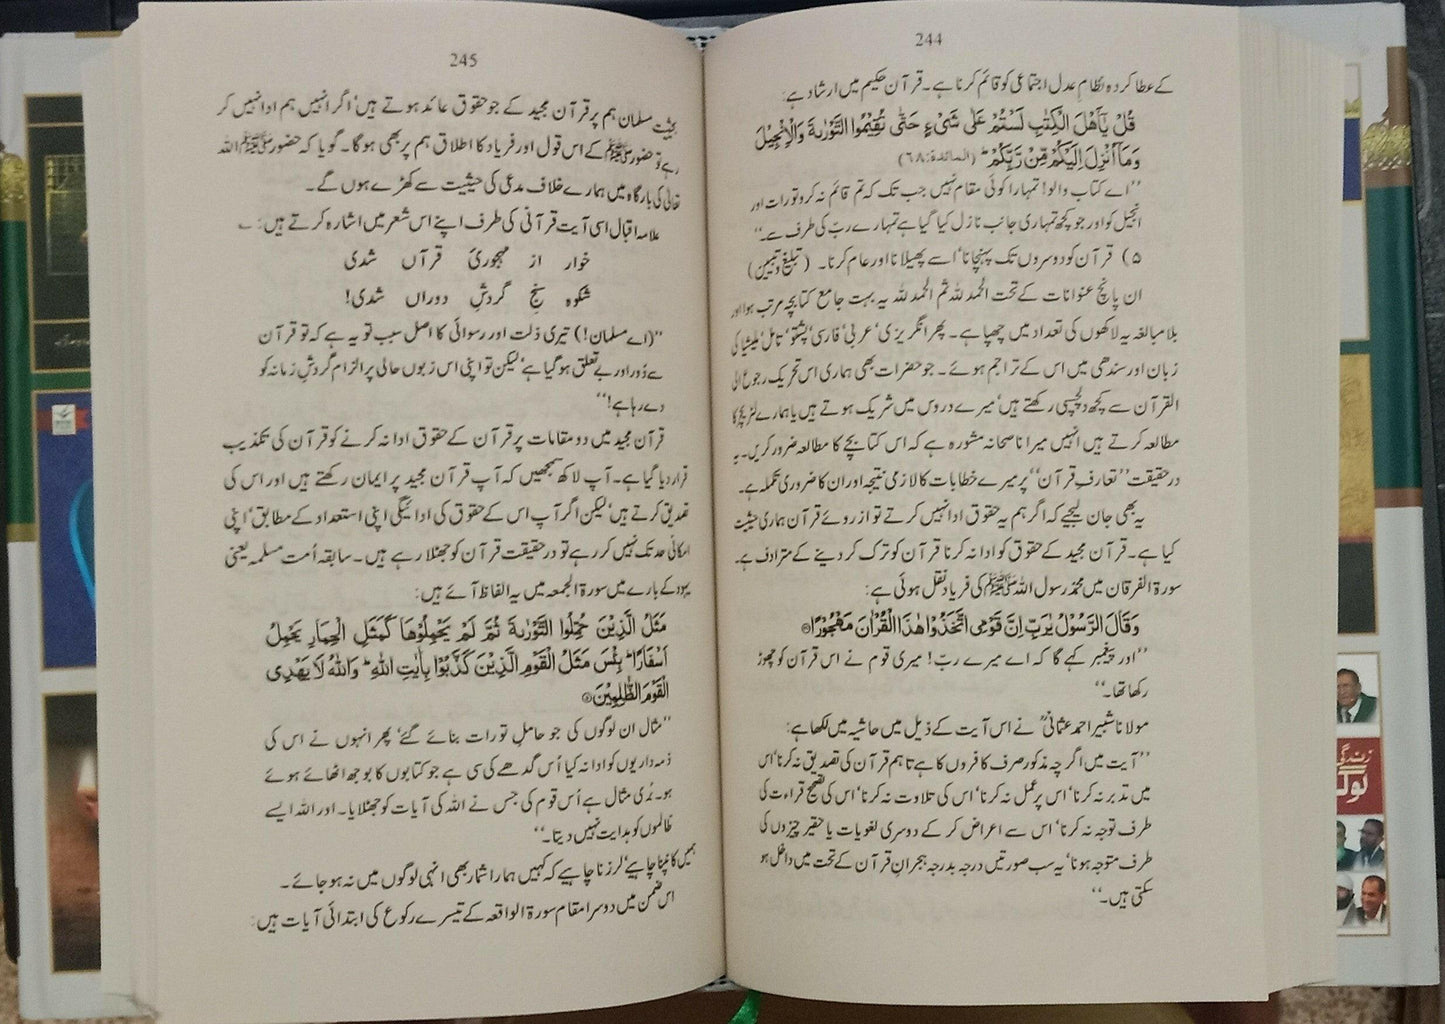 244
کے عطا کردہ نظامِ عدلِ اجتماعی کو قائم کرنا ہے۔ قرآن حکیم میں ارشاد ہے:
قُلْ يٰٓاَهْلَ الْكِتٰبِ لَسْتُمْ عَلٰى شَيْءٍ حَتّٰى تُقِيْمُوا التَّوْرٰىةَ وَالْاِنْجِيْلَ
وَمَآ اُنْزِلَ اِلَيْكُمْ مِّنْ رَّبِّكُمْ ؕ (المائدۃ:۶۸)
’’اے کتاب والو! تمہارا کوئی مقام نہیں جب تک کہ تم قائم نہ کرو تورات اور
انجیل کو اور جو کچھ تمہاری جانب نازل کیا گیا ہے تمہارے ربّ کی طرف سے۔‘‘
۵) قرآن کو دوسروں تک پہنچانا‘ اسے پھیلانا اور عام کرنا۔ (تبلیغ و تبیین)
ان پانچ عنوانات کے تحت الحمد للہ ثم الحمد للہ یہ بہت جامع کتابچہ مرتب ہوا اور
بلامبالغہ یہ لاکھوں کی تعداد میں چھپا ہے۔ پھر انگریزی‘ عربی‘ فارسی‘ پشتو‘ تامل‘ ملیشیا کی
زبان اور سندھی میں اس کے تراجم ہوئے۔ جو حضرات بھی ہماری اس تحریک رجوع الی
القرآن سے کچھ دلچسپی رکھتے ہیں‘ میرے دروس میں شریک ہوتے ہیں یا ہمارے لٹریچر کا
مطالعہ کرتے ہیں انہیں میرا ناصحانہ مشورہ ہے کہ اس کتابچے کا مطالعہ ضرور کریں۔ یہ
درحقیقت ’’تعارفِ قرآن‘‘ پر میرے خطابات کا لازمی نتیجہ اور ان کا ضروری تکملہ ہے۔
یہ بھی جان لیجیے کہ اگر ہم یہ حقوق ادا نہیں کرتے تو از روئے قرآن ہماری حیثیت
کیا ہے۔ قرآن مجید کے حقوق کو ادا نہ کرنا قرآن کو ترک کر دینے کے مترادف ہے۔
سورۃ الفرقان میں محمد رسول اللہ ﷺ کی فریاد نقل ہوئی ہے:
وَقَالَ الرَّسُوْلُ يٰرَبِّ اِنَّ قَوْمِى اتَّخَذُوْا هٰذَا الْقُرْاٰنَ مَهْجُوْرًا ۝
’’اور پیغمبر کہے گا کہ اے میرے ربّ! میری قوم نے اس قرآن کو چھوڑ
رکھا تھا۔‘‘
مولانا شبیر احمد عثمانیؒ نے اس آیت کے ذیل میں حاشیہ میں لکھا ہے:
’’آیت میں اگرچہ مذکور صرف کافروں کا ہے تاہم قرآن کی تصدیق نہ کرنا‘ اس
میں تدبر نہ کرنا‘ اس پر عمل نہ کرنا‘ اس کی تلاوت نہ کرنا‘ اس کی تصحیح قراءت کی
طرف توجہ نہ کرنا‘ اس سے اعراض کر کے دوسری لغویات یا حقیر چیزوں کی
طرف متوجہ ہونا‘ یہ سب صورتیں درجہ بدرجہ ہجرانِ قرآن کے تحت میں داخل ہو
سکتی ہیں۔‘‘
245
بحیثیت مسلمان ہم پر قرآن مجید کے جو حقوق عائد ہوتے ہیں‘ اگر انہیں ہم ادا نہیں کر
رہے تو حضور ﷺ کے اس قول اور فریاد کا اطلاق ہم پر بھی ہوگا۔ گویا کہ حضور ﷺ اللہ
تعالیٰ کی بارگاہ میں ہمارے خلاف مدعی کی حیثیت سے کھڑے ہوں گے۔
علامہ اقبال اسی آیت قرآنی کی طرف اپنے اس شعر میں اشارہ کرتے ہیں: ؎
خوار از مہجوریٔ قرآں شدی
شکوہ سنجِ گردشِ دوراں شدی!
’’(اے مسلمان!) تیری ذلت اور رسوائی کا اصل سبب تو یہ ہے کہ تو قرآن
سے دُور اور بے تعلق ہو گیا ہے‘ لیکن تو اپنی اس زبوں حالی پر الزام گردشِ زمانہ کو
دے رہا ہے!‘‘
قرآن مجید میں دو مقامات پر قرآن کے حقوق ادا نہ کرنے کو قرآن کی تکذیب
قرار دیا گیا ہے۔ آپ لاکھ سمجھیں کہ آپ قرآن مجید پر ایمان رکھتے ہیں اور اس کی
تصدیق کرتے ہیں‘ لیکن اگر آپ اس کے حقوق کی ادائیگی اپنی استعداد کے مطابق‘ اپنی
امکانی حد تک نہیں کر رہے تو درحقیقت قرآن کو جھٹلا رہے ہیں۔ سابقہ اُمت مسلمہ یعنی
یہود کے بارے میں سورۃ الجمعہ میں یہ الفاظ آئے ہیں:
مَثَلُ الَّذِيْنَ حُمِّلُوا التَّوْرٰىةَ ثُمَّ لَمْ يَحْمِلُوْهَا كَمَثَلِ الْحِمَارِ يَحْمِلُ
اَسْفَارًا ؕ بِئْسَ مَثَلُ الْقَوْمِ الَّذِيْنَ كَذَّبُوْا بِاٰيٰتِ اللّٰهِ ؕ وَاللّٰهُ لَا يَهْدِى
الْقَوْمَ الظّٰلِمِيْنَ ۝
’’مثال ان لوگوں کی جو حاملِ تورات بنائے گئے‘ پھر انہوں نے اس کی
ذمہ داریوں کو ادا نہ کیا اُس گدھے کی سی ہے جو کتابوں کا بوجھ اٹھائے ہوئے
ہو۔ بُری مثال ہے اُس قوم کی جس نے اللہ کی آیات کو جھٹلایا۔ اور اللہ ایسے
ظالموں کو ہدایت نہیں دیتا۔‘‘
ہمیں کانپنا چاہیے‘ لرزنا چاہیے کہ کہیں ہمارا شمار بھی انہی لوگوں میں نہ ہو جائے۔
اس ضمن میں دوسرا مقام سورۃ الواقعہ کے تیسرے رکوع کی ابتدائی آیات ہیں:
زندگی